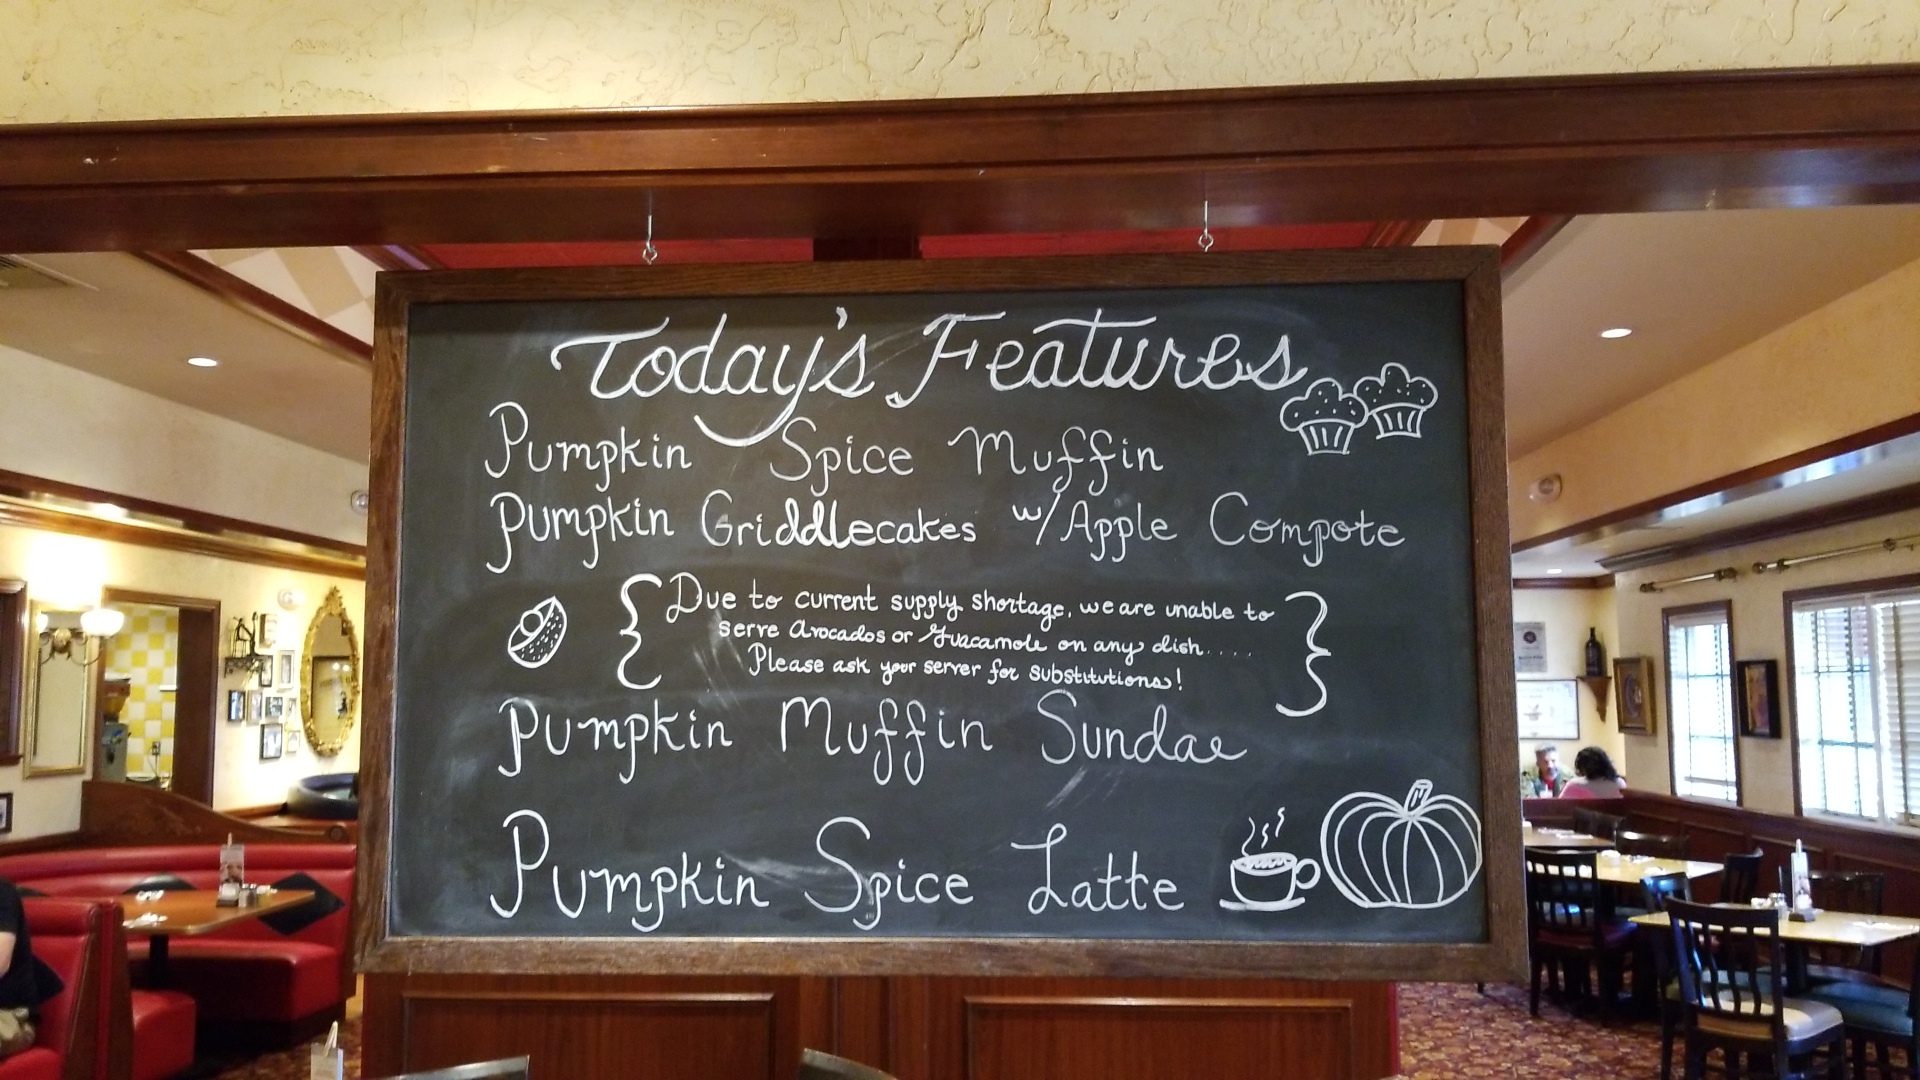 Today's Features
Pumpkin Spice Muffin
Pumpkin Griddlecakes w/Apple Compote
{ Due to current supply shortage, we are unable to
serve Avocados or Guacamole on any dish....
Please ask your server for substitutions! }
Pumpkin Muffin Sundae
Pumpkin Spice Latte